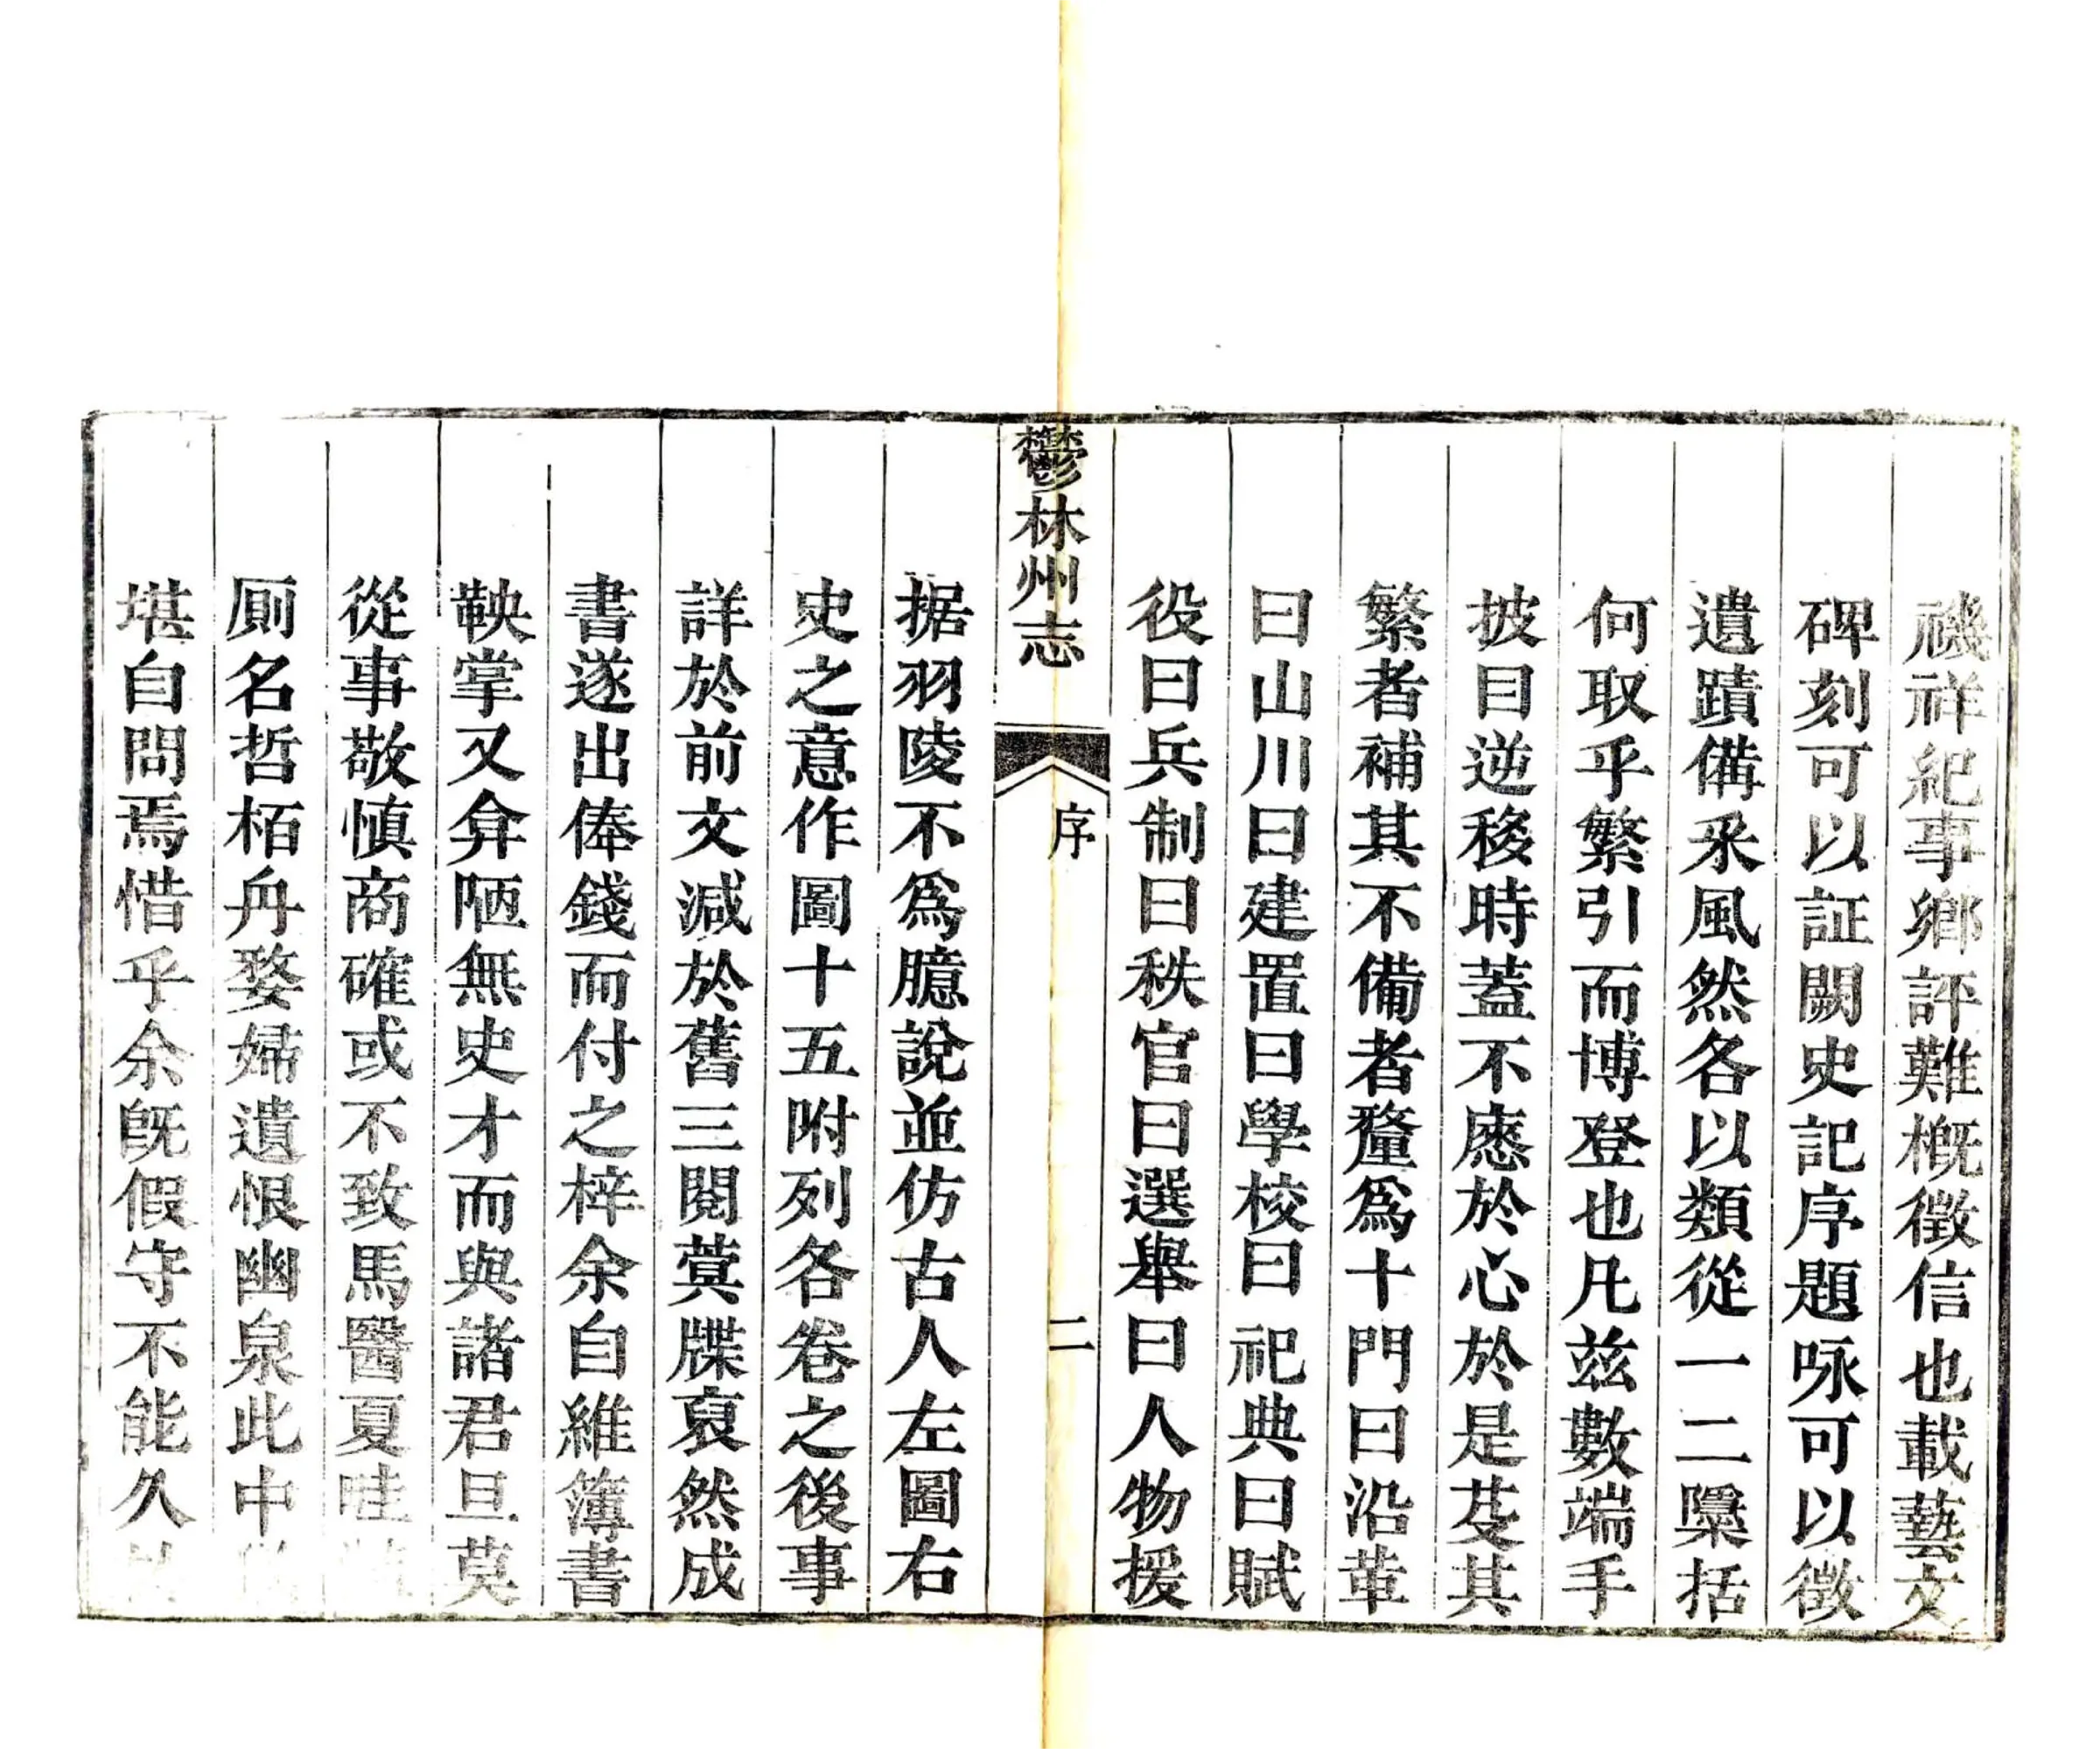 禨祥紀事鄉評難槪徵信也載藝文
碑刻可以証闕史記序題咏可以徵
遺蹟備釆風然各以類從一二檃括
何取乎繁引而博登也凡兹數端手
披目逆移時蓋不慿於心於是芟其
繁者補其不備者釐爲十門曰沿革
曰山川曰建置曰學校曰祀典曰賦
役曰兵制曰秩官曰選舉曰人物援
鬱林州志
序
二
据羽陵不爲臆說並仿古人左圖右
史之意作圖十五附列各卷之後事
詳於前文減於舊三閱蓂牒裒然成
書遂出俸錢而付之梓余自維簿書
鞅掌又弇陋無史才而與諸君旦莫
從事敬慎商確或不致馬醫夏畦
厠名哲栢舟婺婦遺恨幽泉此中
堪自問焉惜乎余旣假守不能久